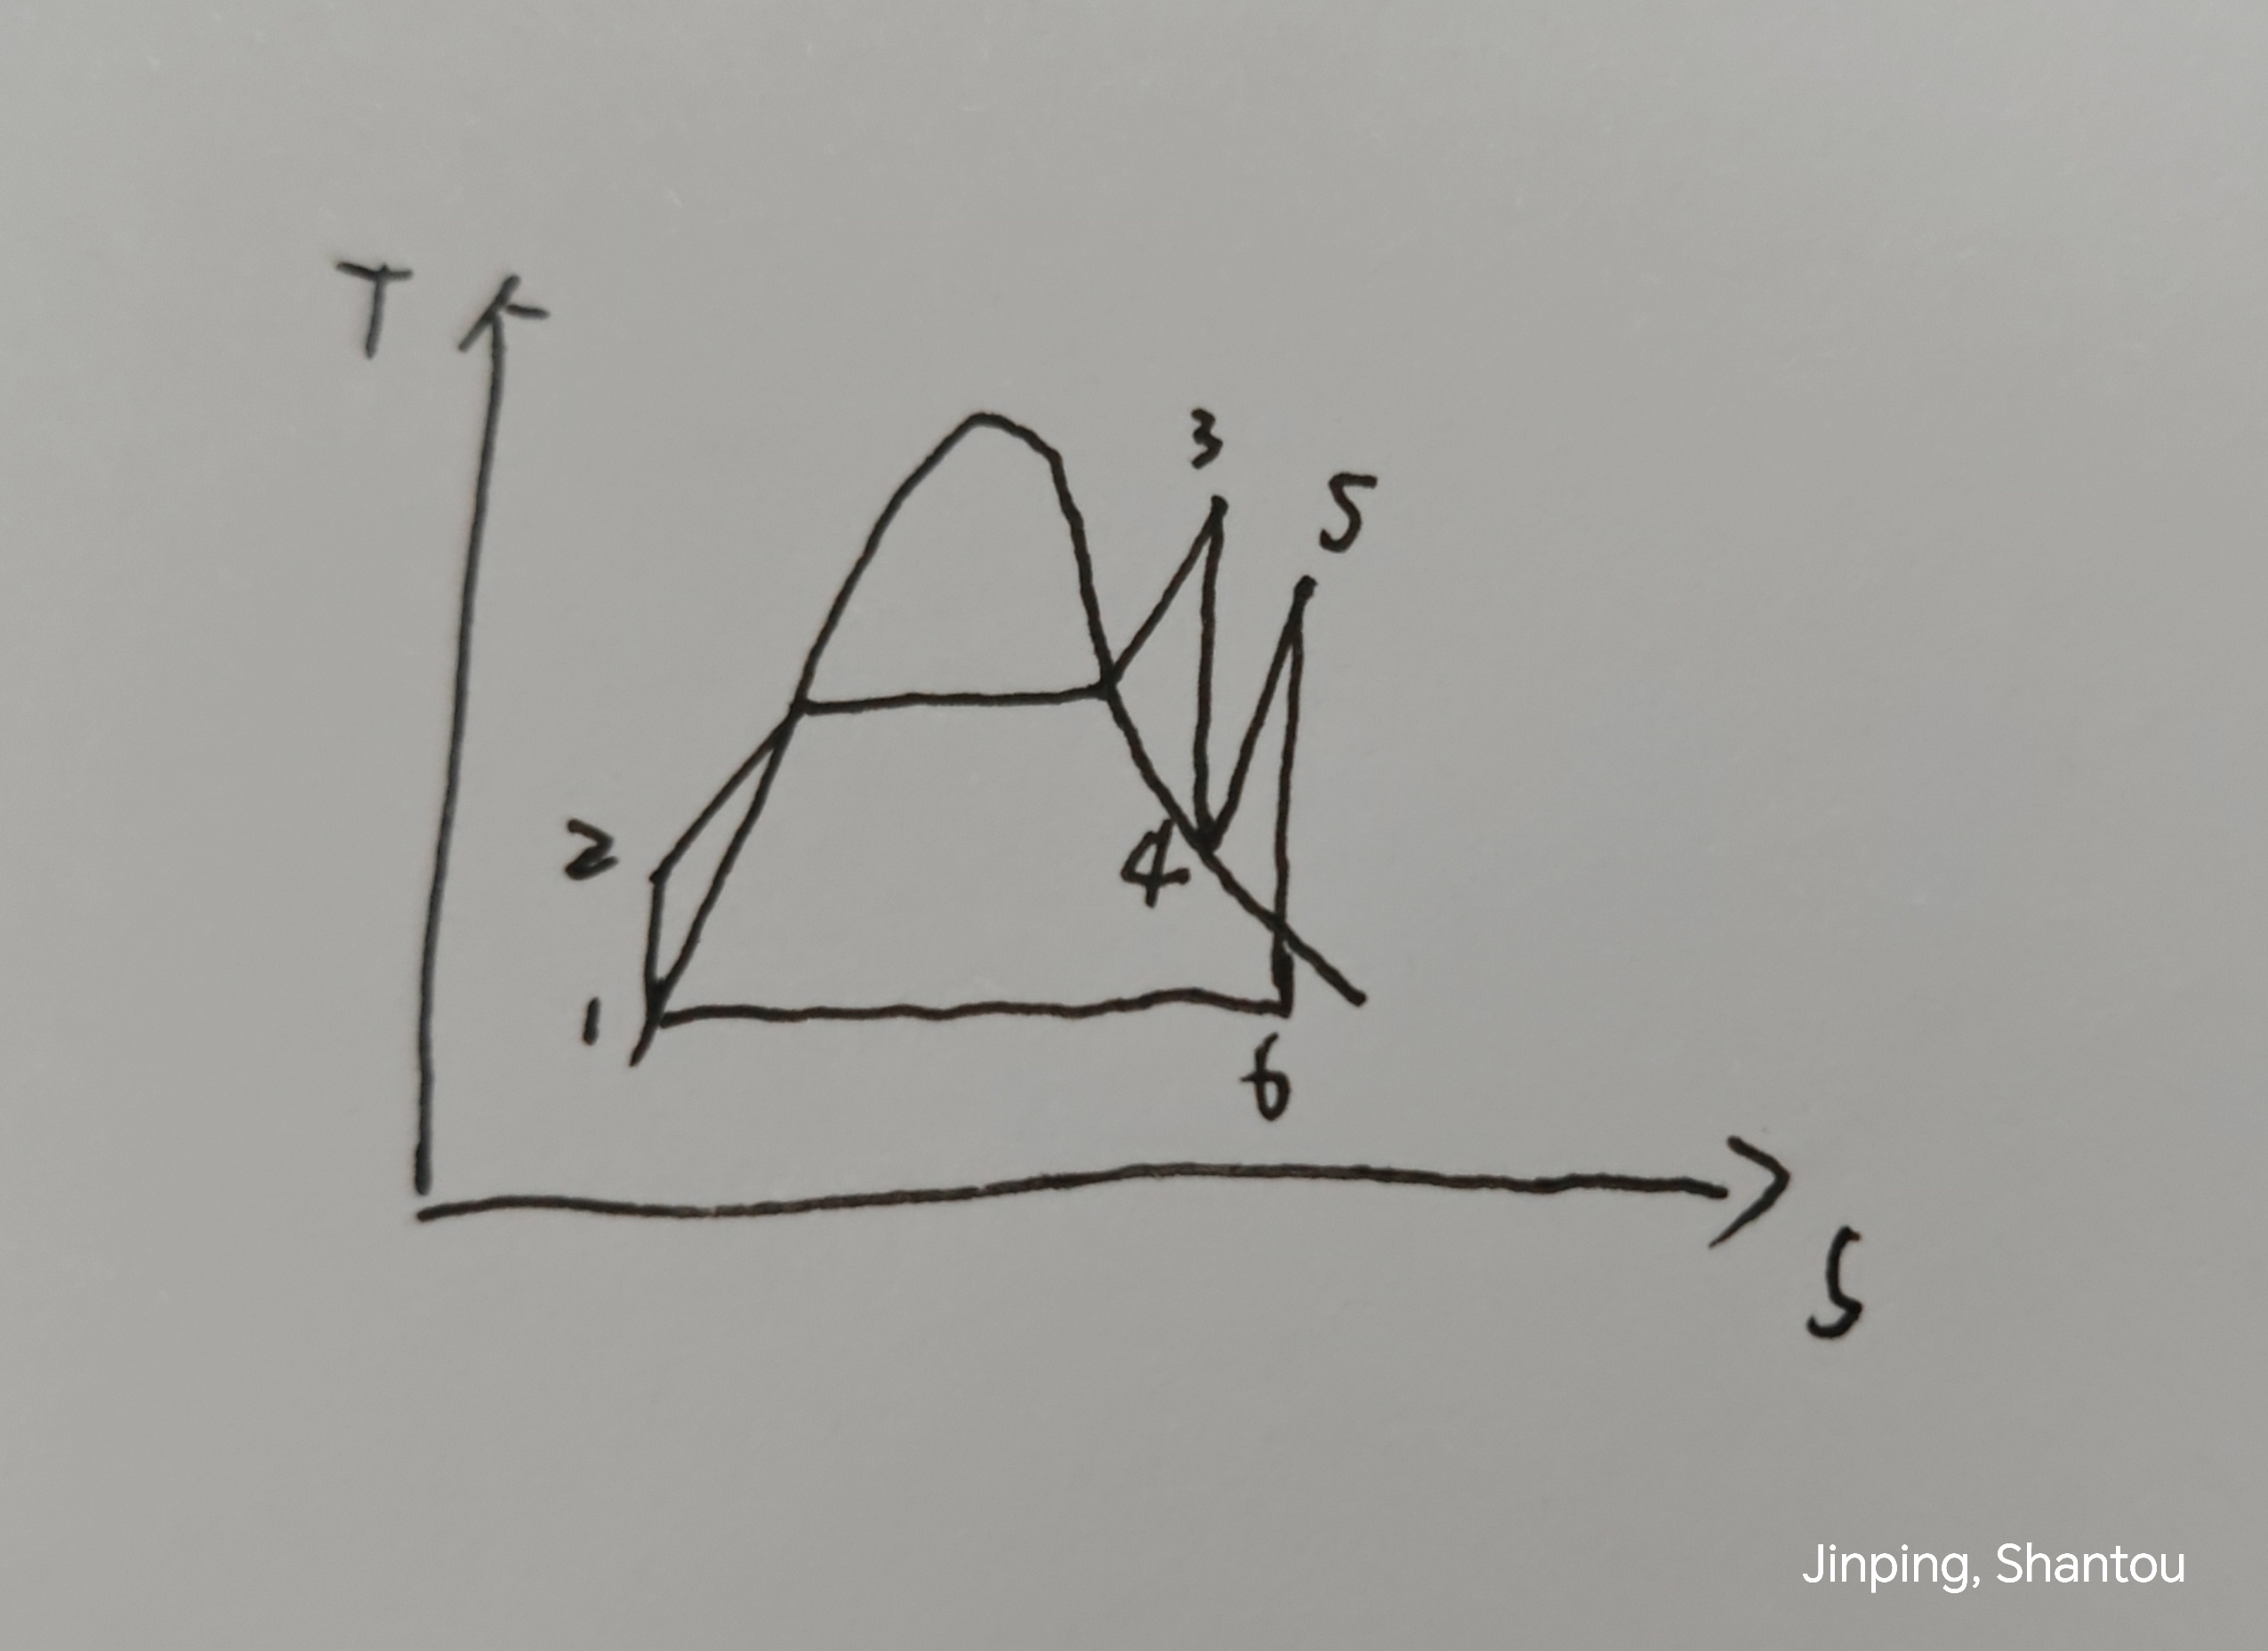 T
3
5
2
4
1
6
S
Jinping, Shantou